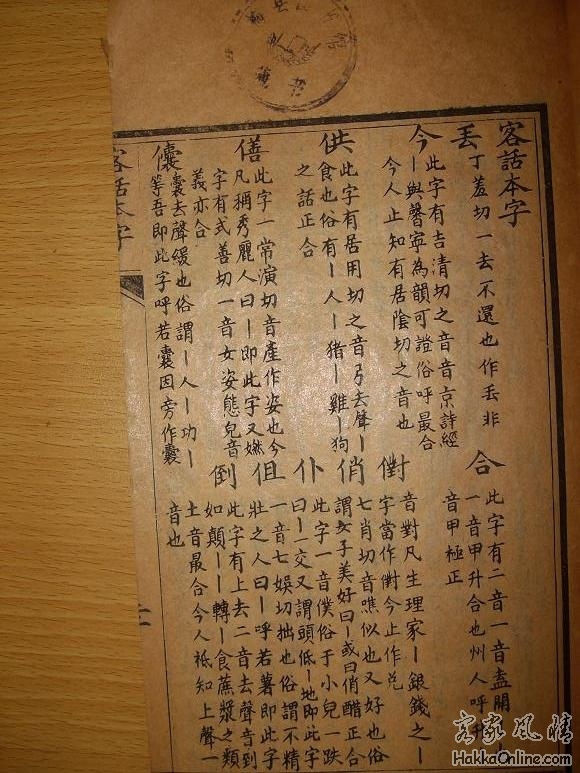 客話本字
丟
丁羞切一去不還也作丢非
今
此字有吉清切之音音京詩經
丨與馨寧為韻可證俗呼最合
今人止知有居陰切之音也
供
此字有居用切之音弓去聲丨
食也俗有丨人丨猪丨雞丨狗
之話正合
僐
此字一常演切音產作姿也今
凡稱秀麗人曰丨即此字又
字有式善切一音女姿態皃音
義亦合
儾
囊去聲緩也俗謂丨人丨功丨
等吾即此字呼若囊因旁作囊
合
此字有二音一音盍開丨
一音甲升合也州人呼升
音甲極正
㑔
音對凡生理家丨銀錢之丨
字當作㑔今止作兌
俏
七肖切音噍似也又好也俗
謂女子美好曰丨或曰俏醋正合
仆
此字一音僕俗于小兒一跌
曰丨一交又謂頭低丨地即此字
伹
一音七娱切拙也俗謂不精
壯之人曰丨呼若薯即此字
倒
此字有上去二音去聲音到
如顛丨丨轉丨食蔗漿之類
土音最合今人祗知上聲一
音也
客話本字
客家風情
HakkaOnline.com